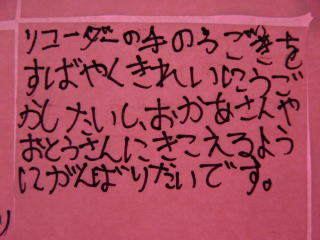 リコーダーの手のうごきを
すばやくきれいにうご
かしたいし、おかあさんや
おとうさんにきこえるよう
にがんばりたいです。
り